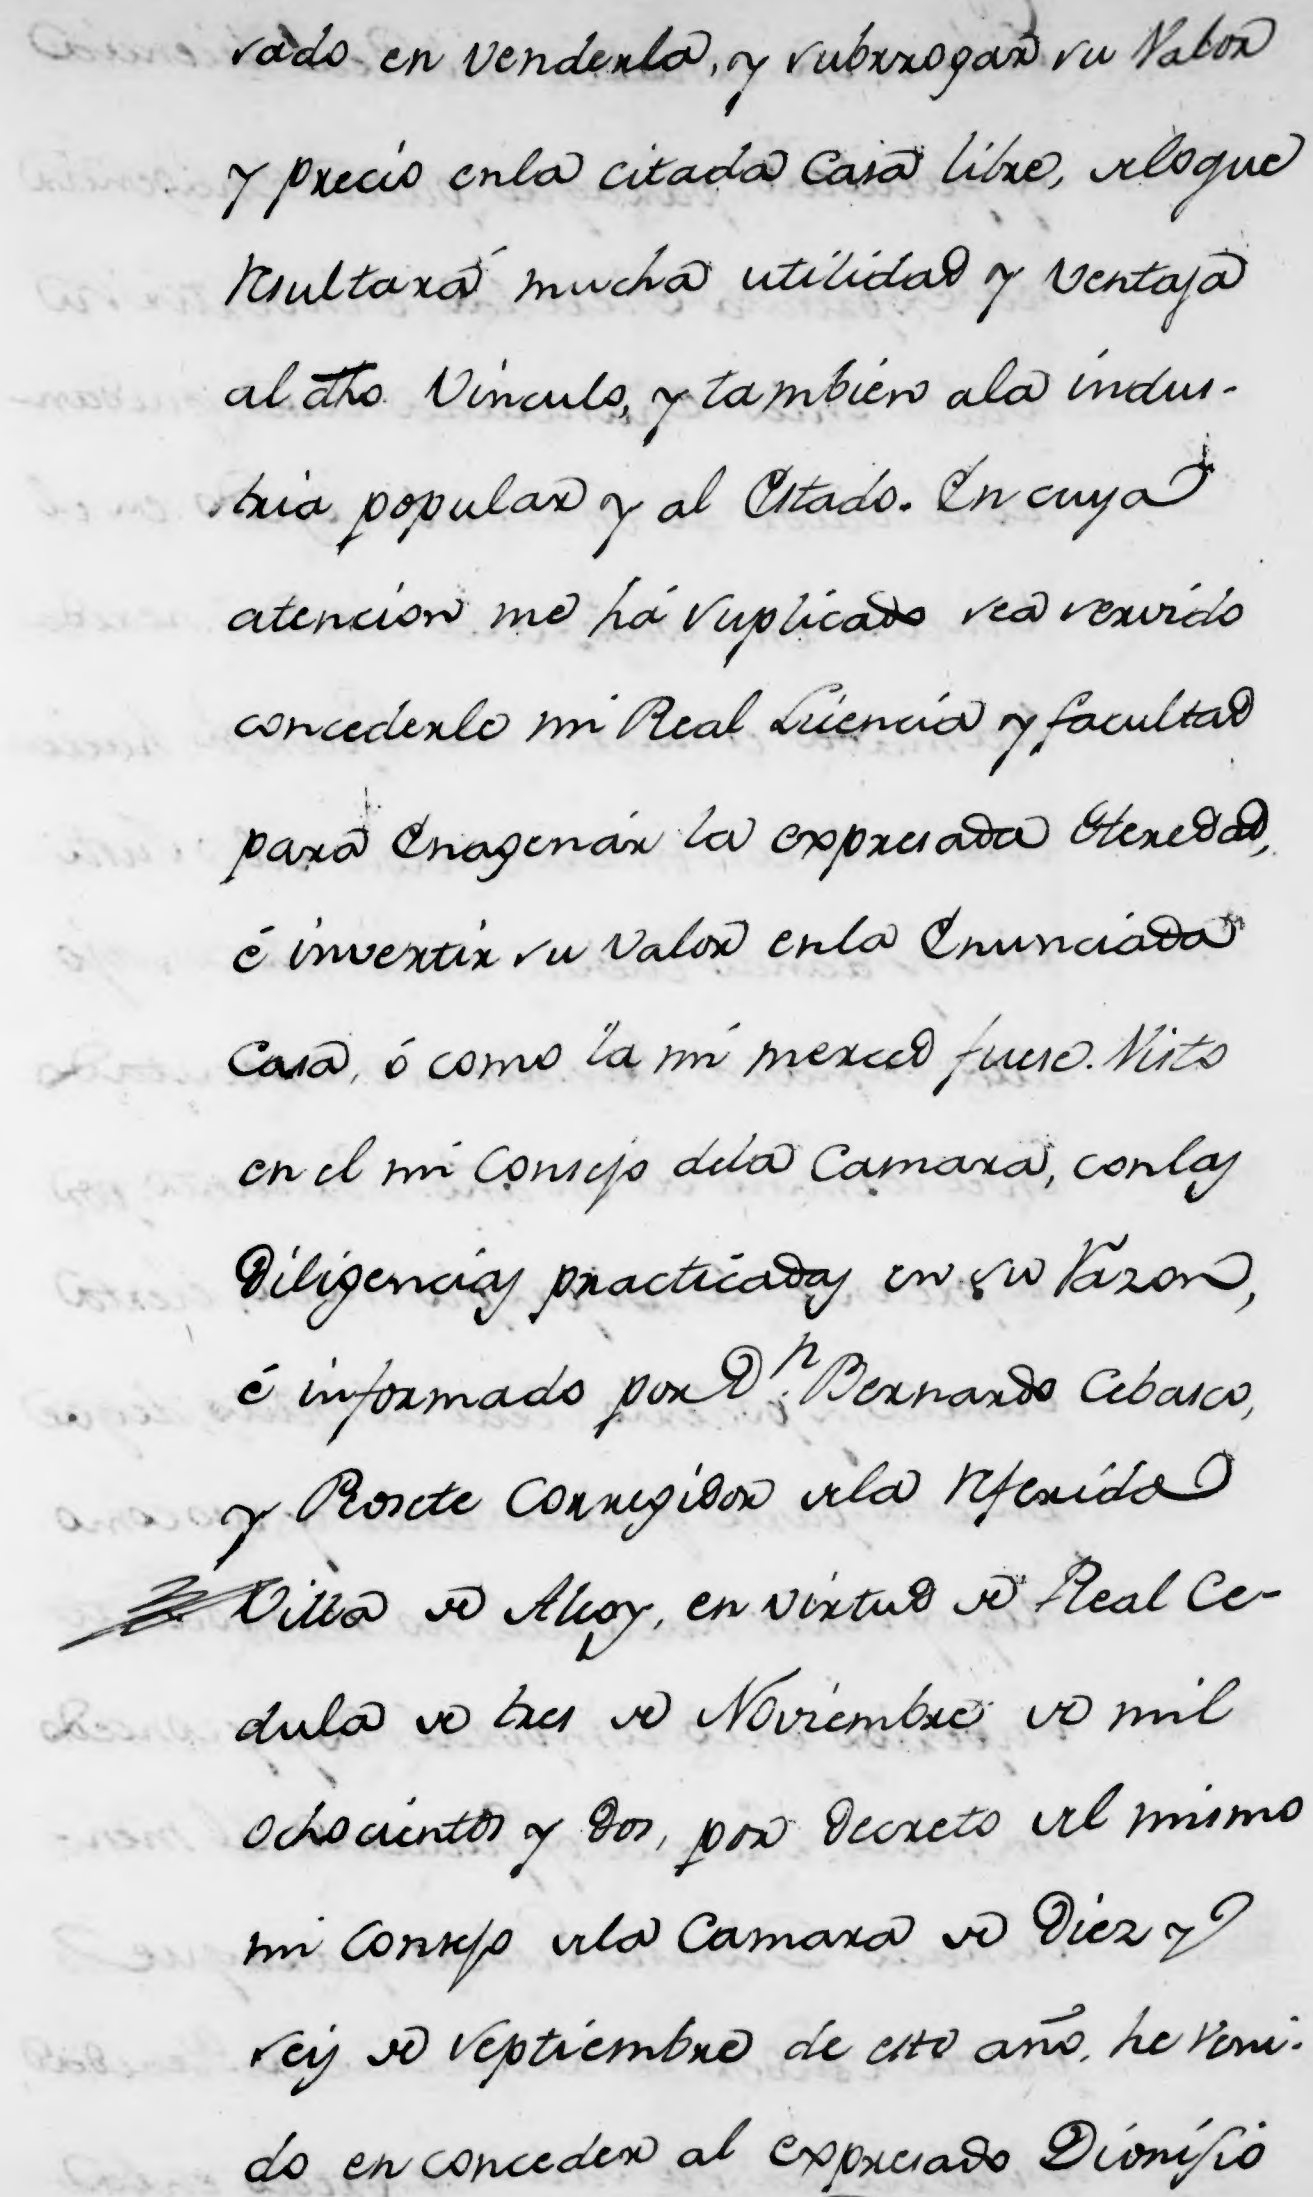 sado en venderla, y subrrogar su Valor
y precio enla citada Casa libre, deloque
resultará mucha utilidad y ventaja
al dho. Vinculo, y tambien ala indus-
tria popular y al Estado. En cuya
atencion me há suplicado sea servido
concederle mi Real Licencia y facultad
para Enagenár la expresada Heredad,
é invertir su valor enla Enunciada
Casa, ó como la mi merced fuese. Visto
en el mi Consejo dela Camara, conlas
Diligencias practicadas en su razon,
é informado por Dn. Bernardo Cebasco,
y Rosete Corregidor dela referida
Villa de Alcoy, en virtud de Real Ce-
dula de tres de Noviembre de mil
ochocientos y dos, por decreto del mismo
mi Consejo dela Camara de Diez y
seis de septiembre de este año, he veni-
do en conceder al expresado Dionisio